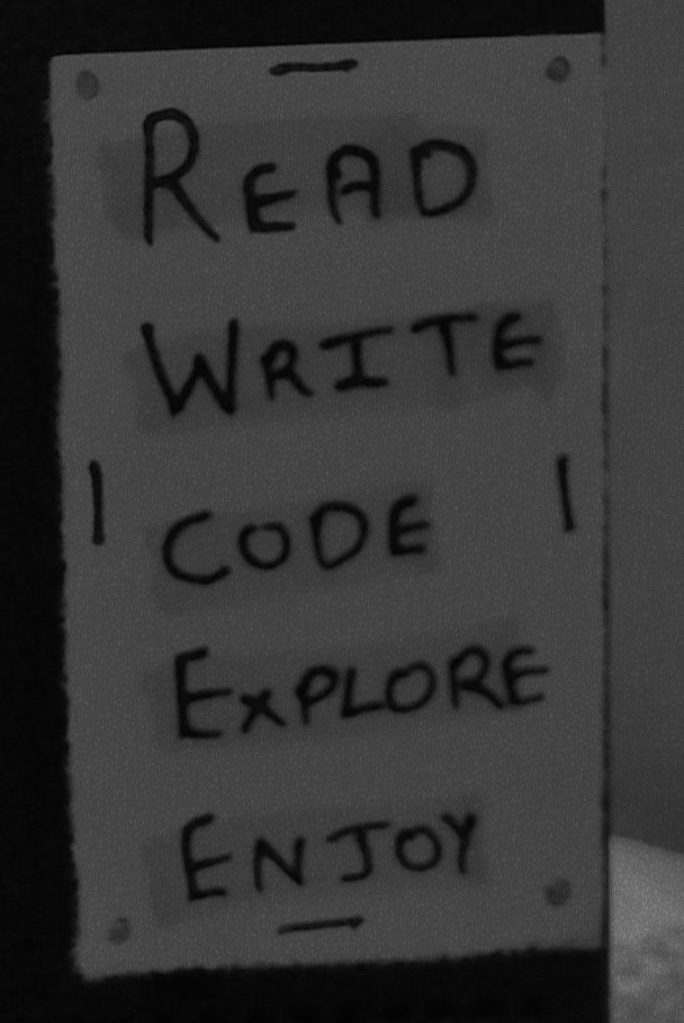 READ
WRITE
CODE
EXPLORE
ENJOY